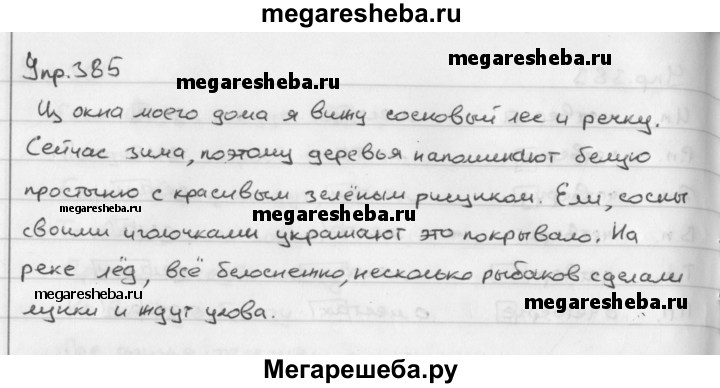 megaresheba.ru
Упр.385
megaresheba.ru
megaresheba.ru
Из окна моего дома я вижу сосновый лес и речку.
Сейчас зима, поэтому деревья напоминают белую
простыню с красивым зелёным рисунком. Ели, сосны
megaresheba.ru
megaresheba.ru
своими иголочками украшают это покрывало. На
реке лёд, всё белоснежно, несколько рыбаков сделали
megaresheba.ru
megaresheba.ru
лунки и ждут улова.
Мегарешеба.ру